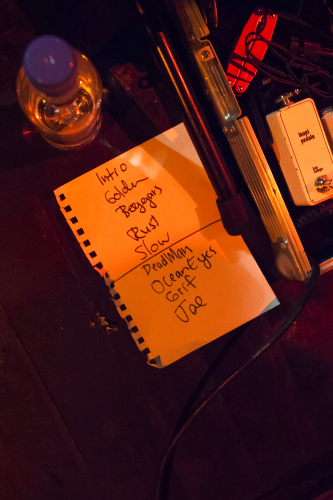 Intro
Golden
Beggars
Rust
Slow
DeadMan
OceanEyes
Grif
Jae